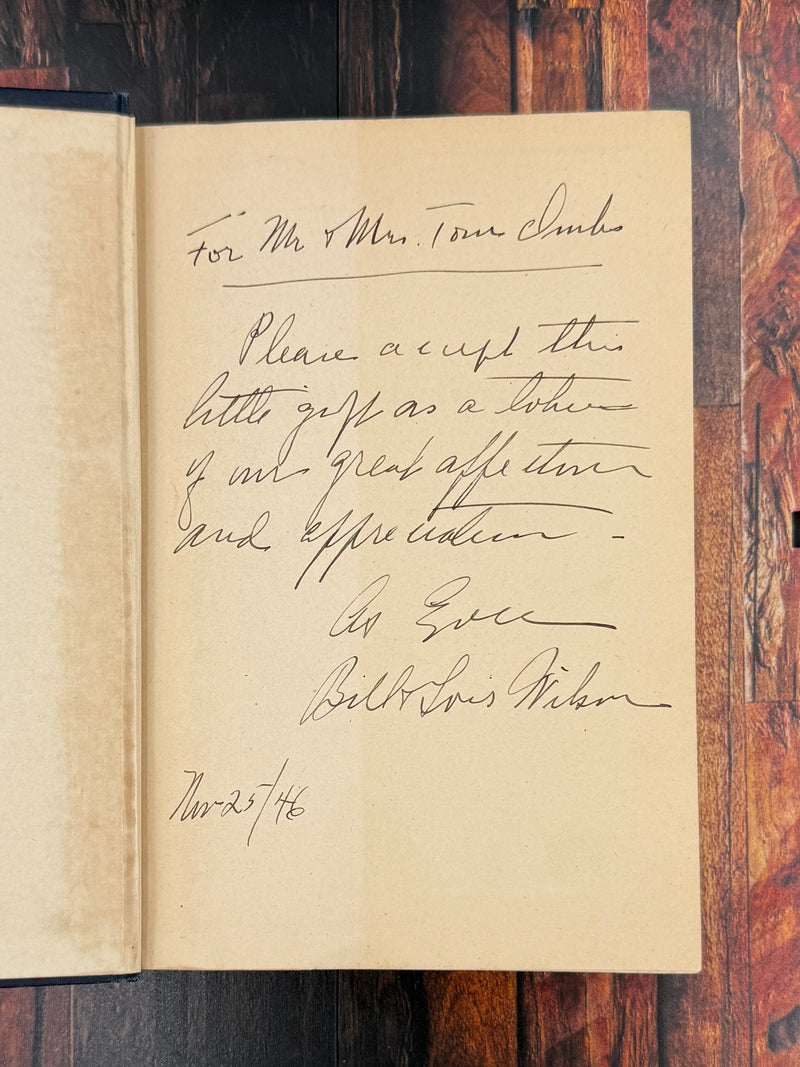 For Mr & Mrs. Tom
Please accept this
little gift as a token
of our great affection
and appreciation -
As Ever
Bill & Lois Wilson
Nov 25/46